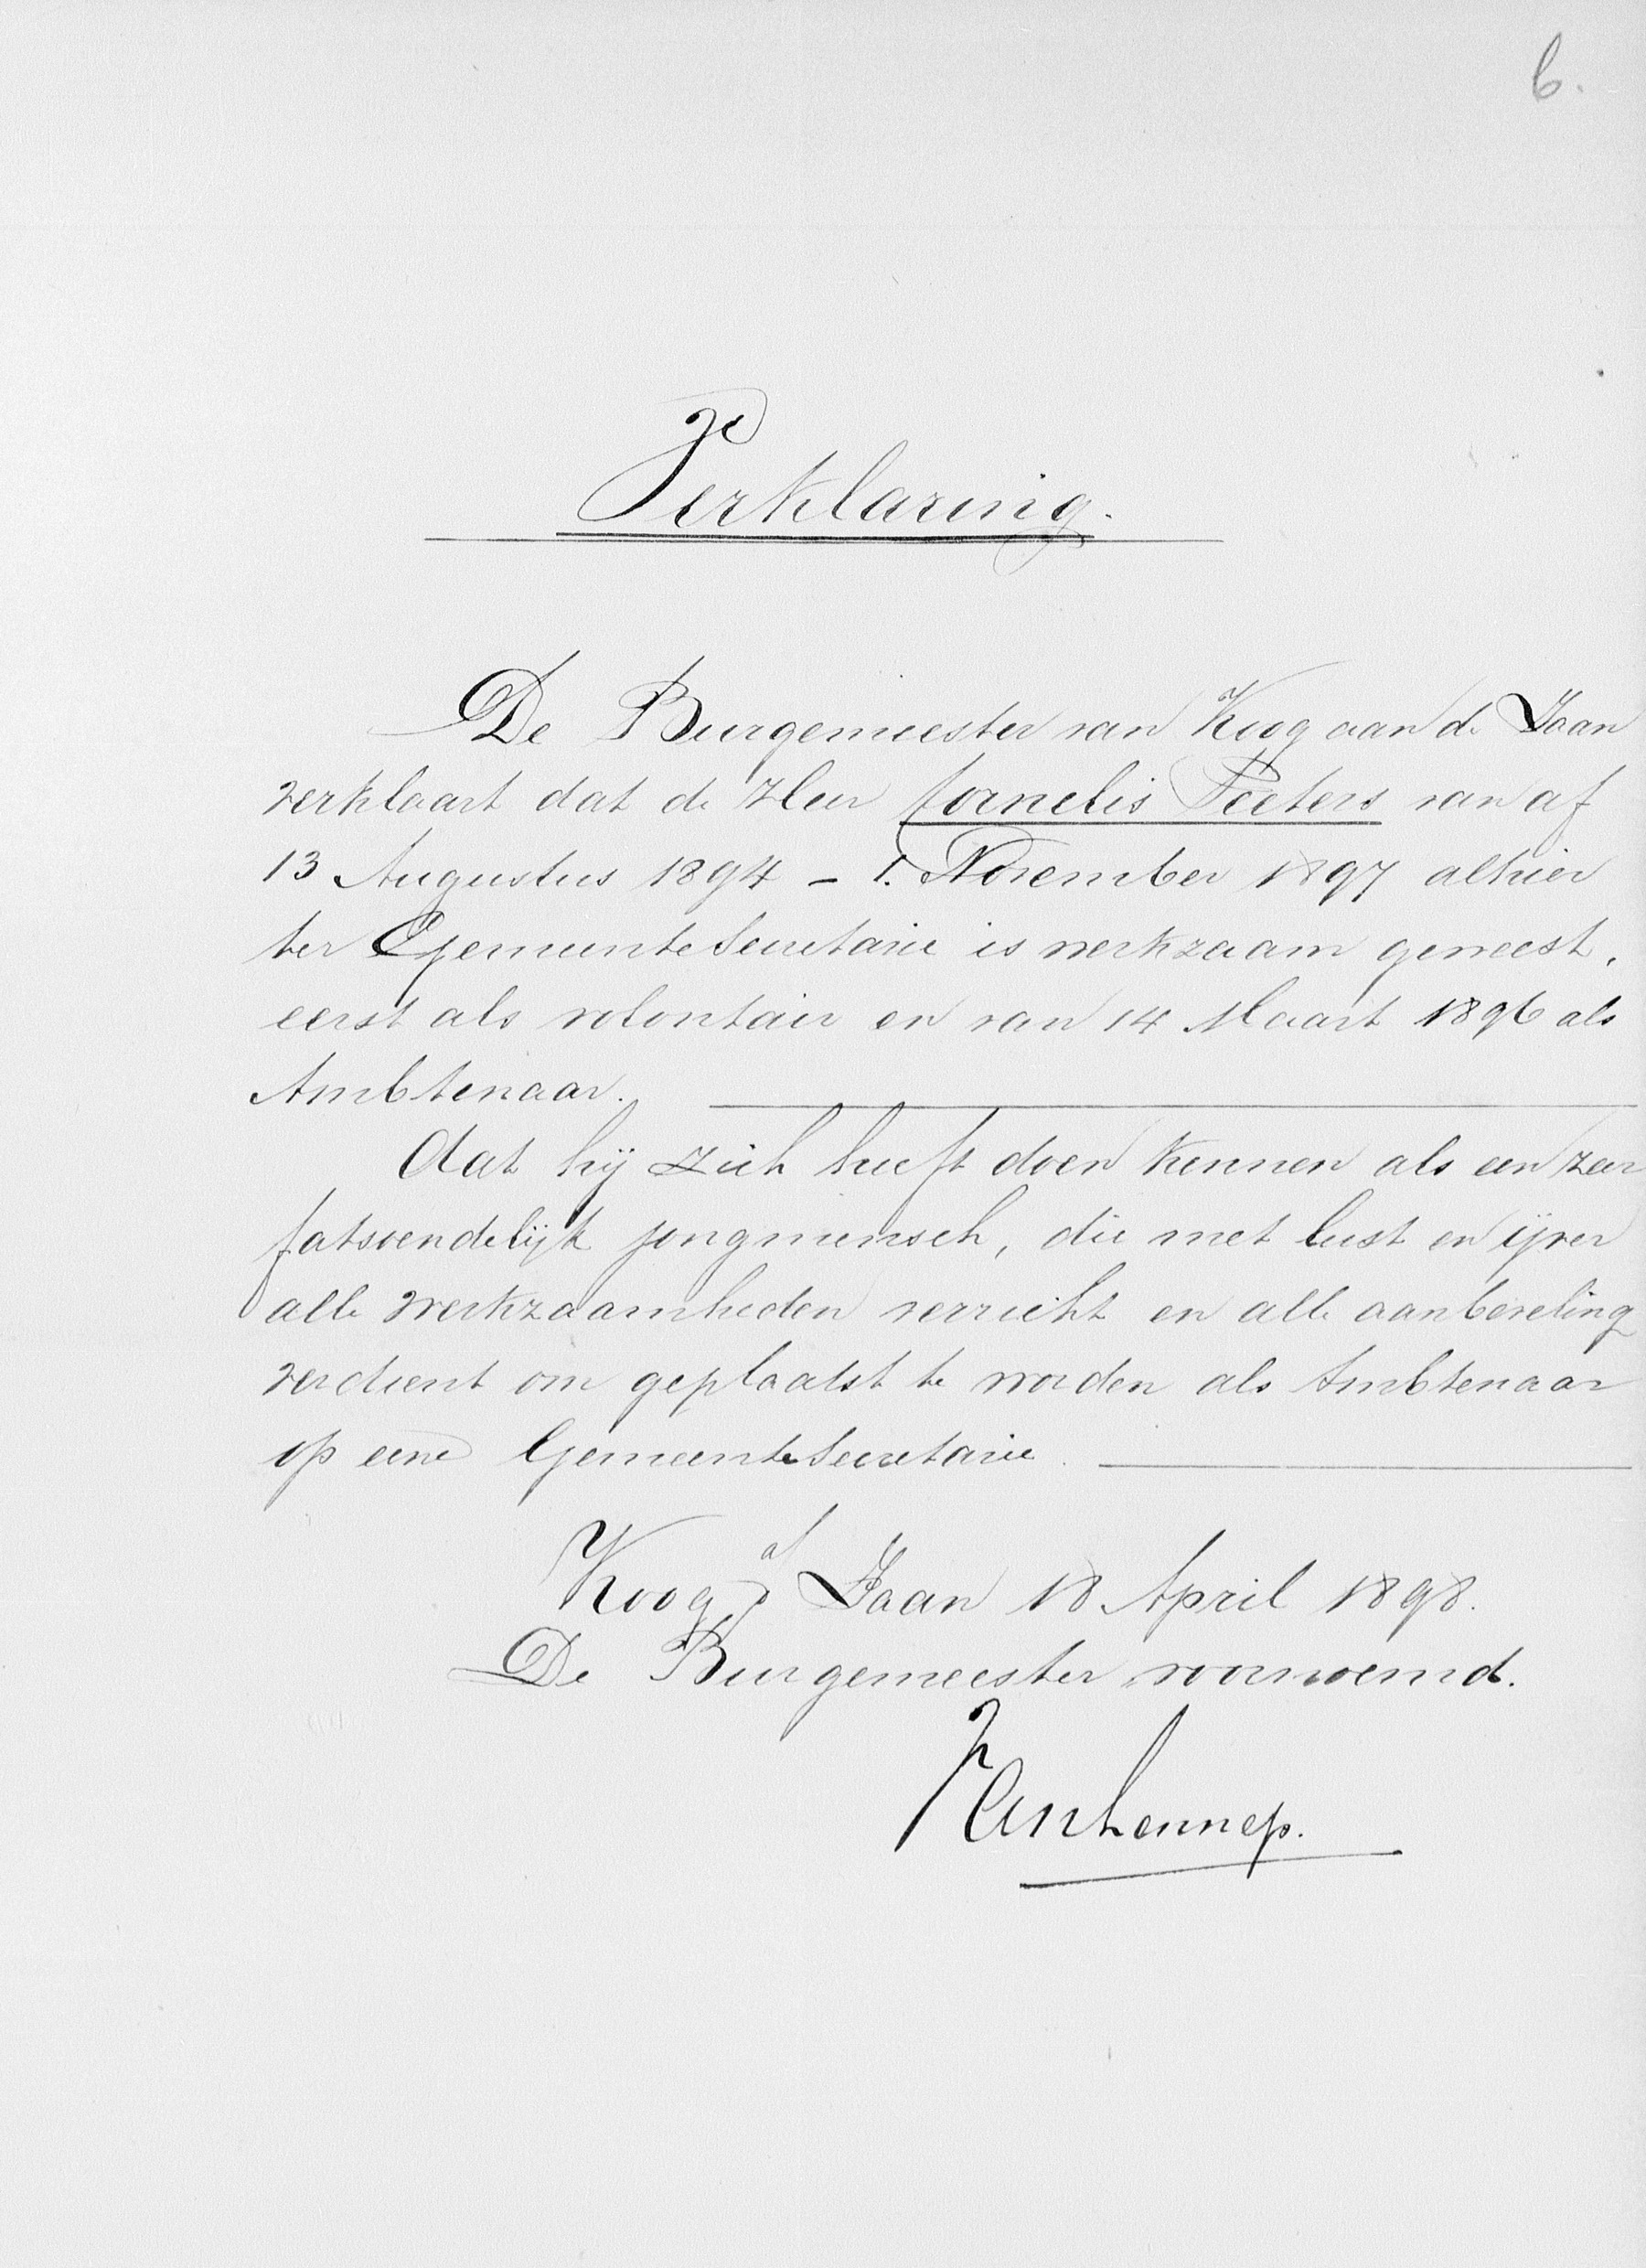 6.
Verklaring.
De Burgemeester van Koog aan de Zaan
verklaart dat de Heer Cornelis Peeters vanaf
13 Augustus 1894 - 1. November 1897 alhier
ter GemeenteSecretarie is werkzaam geweest,
eerst als volontair en van 14 Maart 1896 als
Ambtenaar.
dat hij zich heeft doen kennen als een zeer
fatsoendelijk jongmensch, die met lust en ijver
alle werkzaamheden verricht en alle aanbeveling
verdient om geplaatst te worden als Ambtenaar
op eene GemeenteSecretarie.
Koog a/d Zaan 18 April 1898.
De Burgemeester voornoemd.